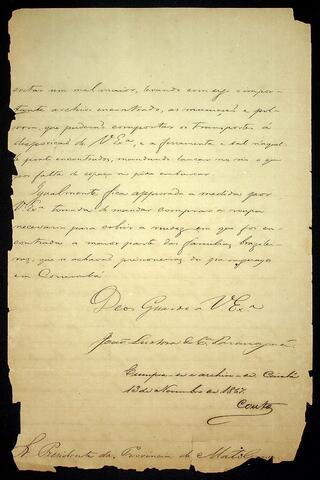 evitar um mal maior, levando comsigo o impor-
tante archivo encontrado, as munições e pol-
vora, que puderão comportar os transportes á
disposição de VExª, e a ferramenta e sal n'aquel-
le ponto encontrados, mandando lançar no rio o que
por falta de espaço não podia embarcar.
Igualmente fica approvada a medida por
VExª tomada de mandar comprar a roupa
necessaria para cobrir a nudez em que foi en-
contrada a maior parte das familias brazilei-
ras, que se achavão prisioneiras do paraguayo
em Corumbá.
Deos Guarde a VExª
João Lustosa da Cª Paranaguá
Cumpra-se e archive-se. Cuiabá
13 de Novembro de 1867.
Couto
Sr Presidente da Provincia de Matto